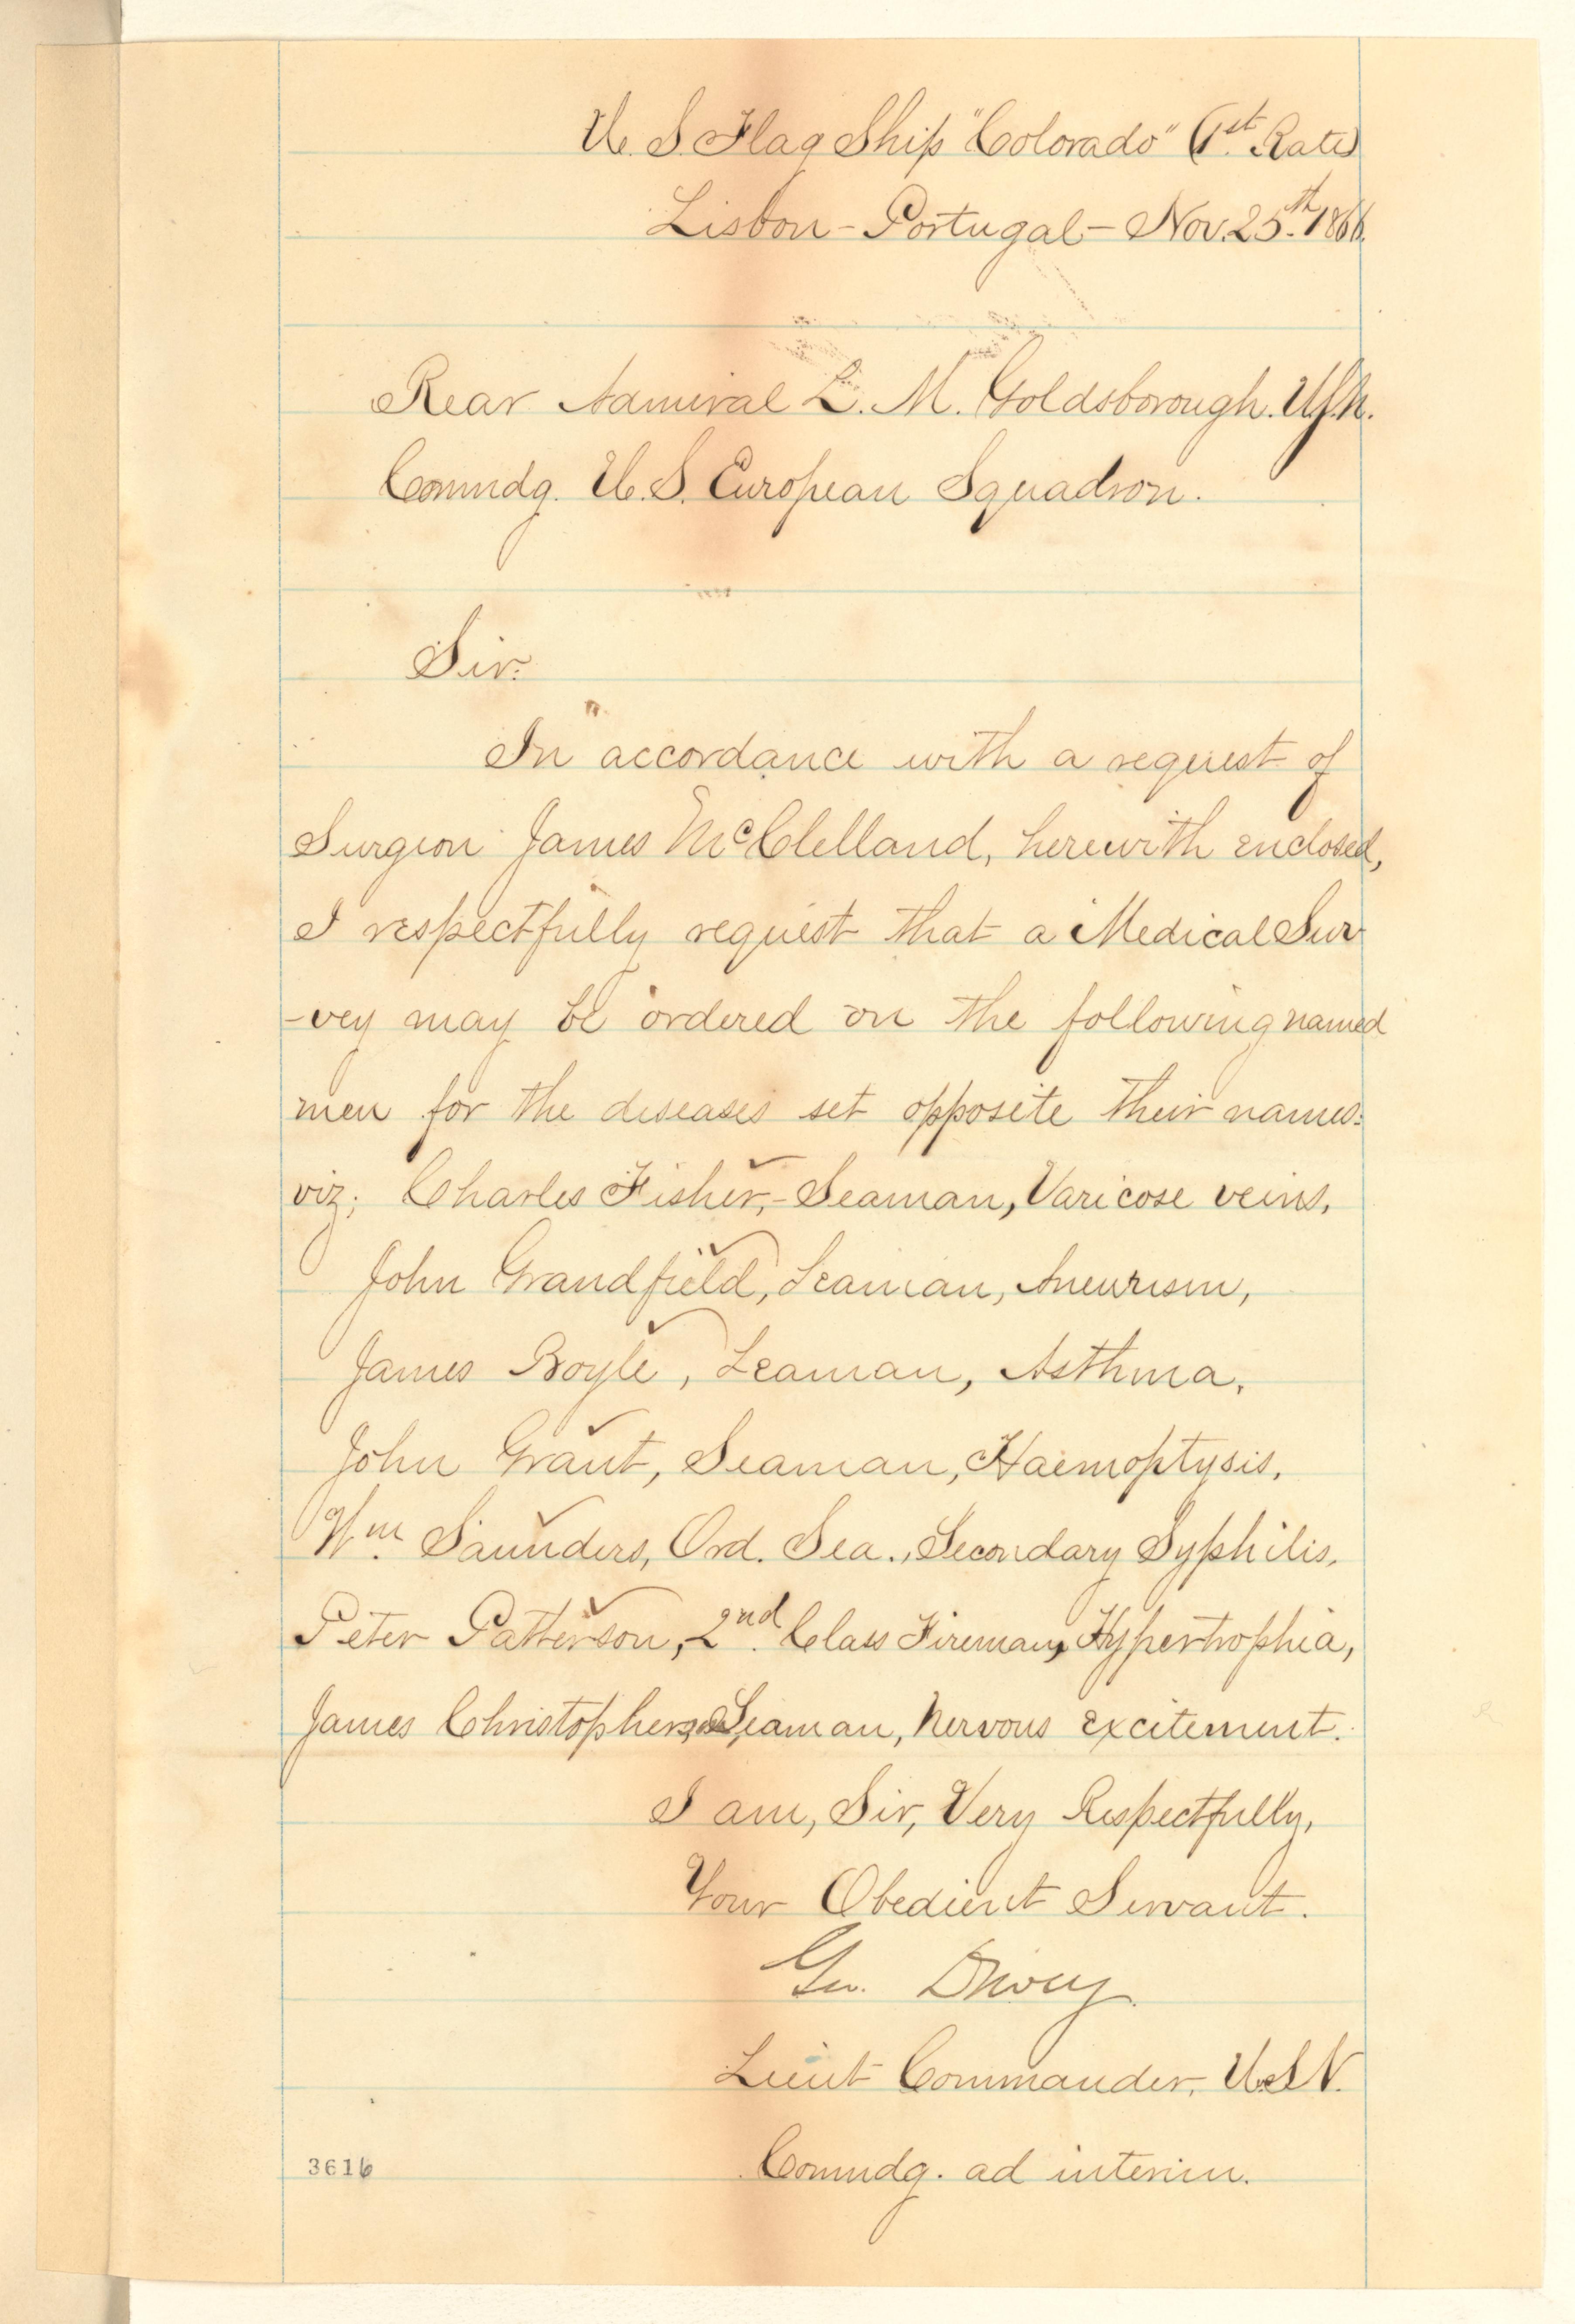 U. S. Flag Ship "Colorado" (1st. Rate)
Lisbon - Portugal - Nov. 25th. 1866.
Rear Admiral L. M. Goldsborough. U.S.N.
Commdg. U. S. European Squadron.
Sir:
In accordance with a request of
Surgeon James McClelland, herewith enclosed,
I respectfully request that a Medical Sur
-vey may be ordered on the following named
men for the diseases set opposite their names:
viz; Charles Fisher, - Seaman, Varicose veins,
John Grandfield, Seaman, Aneurism,
James Boyle, Seaman, Asthma,
John Grant, Seaman, Haemoptysis,
Wm. Saunders, Ord. Sea., Secondary Syphilis,
Peter Patterson, 2nd. Class Fireman, Hypertrophia,
James Christopher, Seaman, Nervous excitement.
I am, Sir, Very Respectfully,
Your Obedient Servant.
Geo. Dewey
Lieut Commander, U.S.N.
Commdg. ad interim.
3616